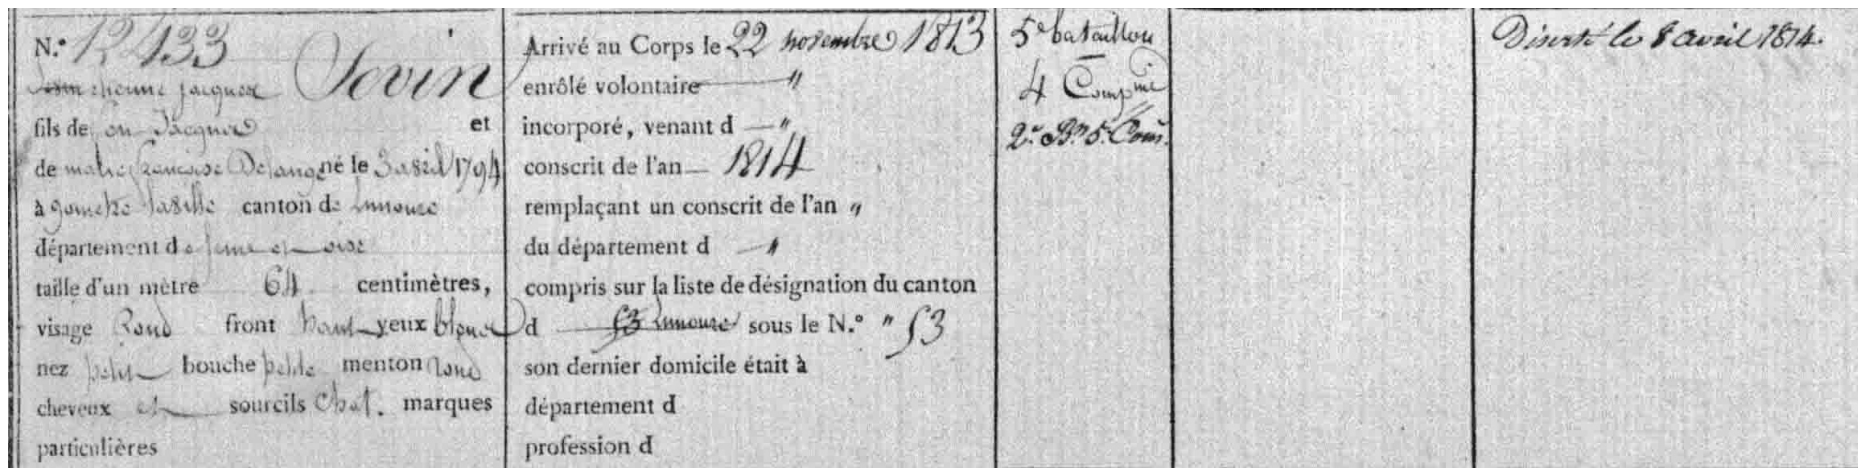 N.º 12433 Sevin
etienne jacques
fils de feu Jacques et
de marie françoise Delange né le 3 avril 1794
à gometz laville canton de Limours
département de seine et oise
taille d'un mètre 64 centimètres,
visage Rond front haut yeux bleux
nez petit bouche petite menton rond
cheveux et sourcils chat. marques
particulières
Arrivé au Corps le 22 novembre 1813
enrôlé volontaire "
incorporé, venant d "
conscrit de l'an 1814
remplaçant un conscrit de l'an "
du département d "
compris sur la liste de désignation du canton
d 53 Limours sous le N.º " 53
son dernier domicile était à
département d
profession d
5e bataillon
4 Compnie
2e Bon 5e Com.
Déserté le 8 avril 1814.